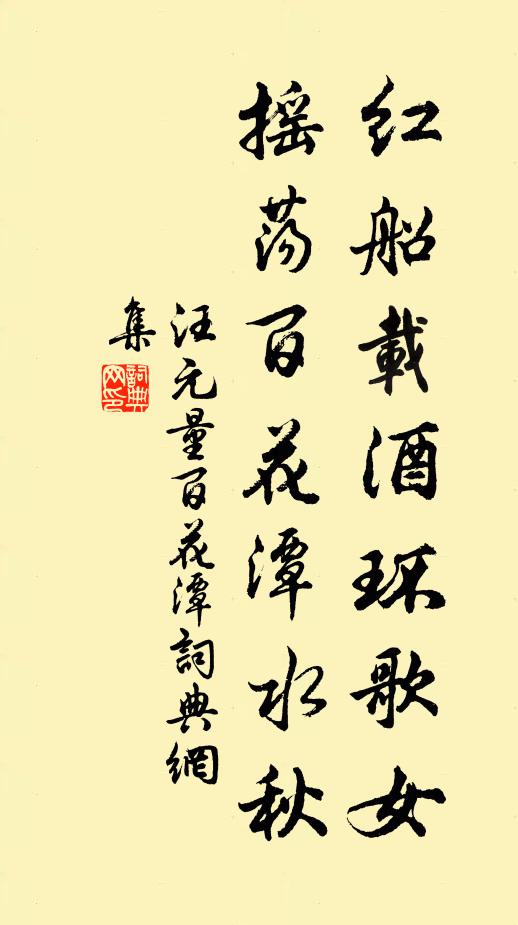 红船載酒环歌女
摇荡百花潭水秋
汪元量百花潭詞典網
集
詞典
网印